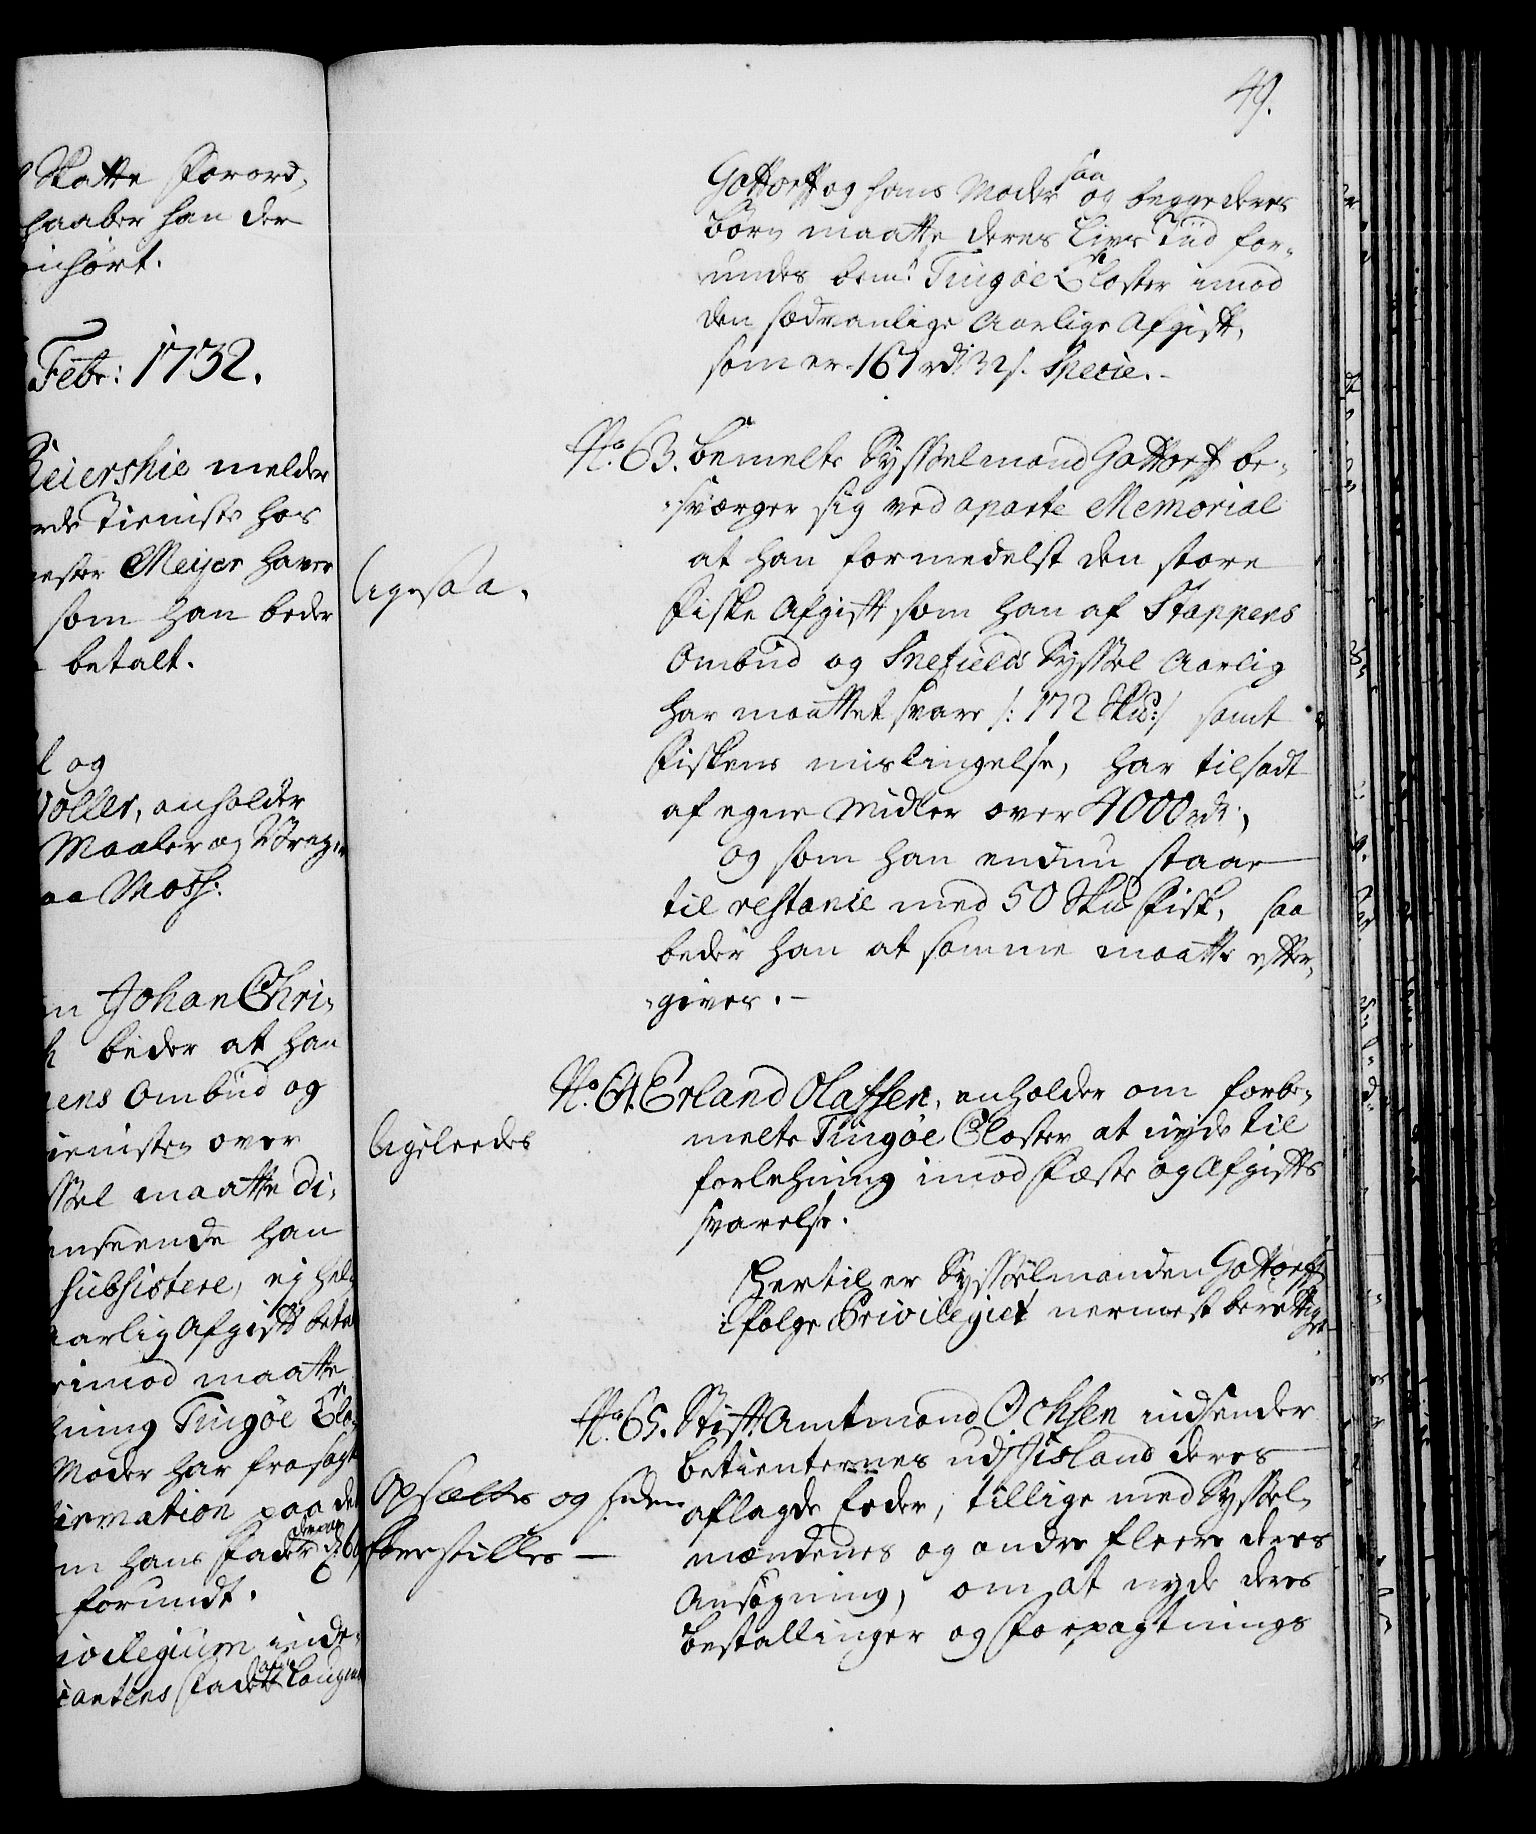 Skatte Forord,
haaber han der
inført.
Febr: 1732.
Reiershie melder
Tieniste hos
mester Meijer haver
som han beder
betalt.
og
Voller, anholder
Maaler og Vrager
paa Moss:
Johan Chri,
beder at han
pens Ombud og
tienisten over
ssel maatte di,
anseende han
subsistere, ej hel,
aarlig Afgift beta
imod maatte
ning Tingøe Clo,
Moder har frasagt
firmation paa de
hans Fader
forundt.
ivilegium inde,
Fader
49.
Gottorff og hans Moder saa
og begge deres
Børn maatte deres Livs Tiid for,
undes bemte Tingøe Closter imod
den sædvanlige Aarlige Afgift,
som er 161 rdr 32 s. Specie.
No. 63. Bemelte Sysselmand Gottorff be,
sværger sig ved aparte Memorial
at han formedelst den store
Fiske Afgift som han af Stappens
Ombud og Snefields Syssel Aarlig
har maattet svare /: 172 Skd :/ samt
Fiskens mislingelse, har tilsadt
af egne Midler over 4000 rdr,
og som han endnu staar
til restance med 50 Skd Fisk, saa
beder han at samme maatte efter,
gives.
ligesaa.
No. 64. Erland Olafsen, anholder om forbe,
melte Tingøe Closter at nyde til
forlehning imod Fæste og Afgifts
svarelse.
ligeleedes
Hertil er Sysselmanden Gottorff
ifølge Privilegiet nermest berettig
get.
No. 65. Stift Amtmand Ochsen indsender
betienternes udj Jisland deres
aflagde Eeder, tillige med Syssel,
mændenes og andre fleere deres
Ansøgning, om at nyde deres
bestallinger og Forpagtnings
Opsættes og siden
forestilles